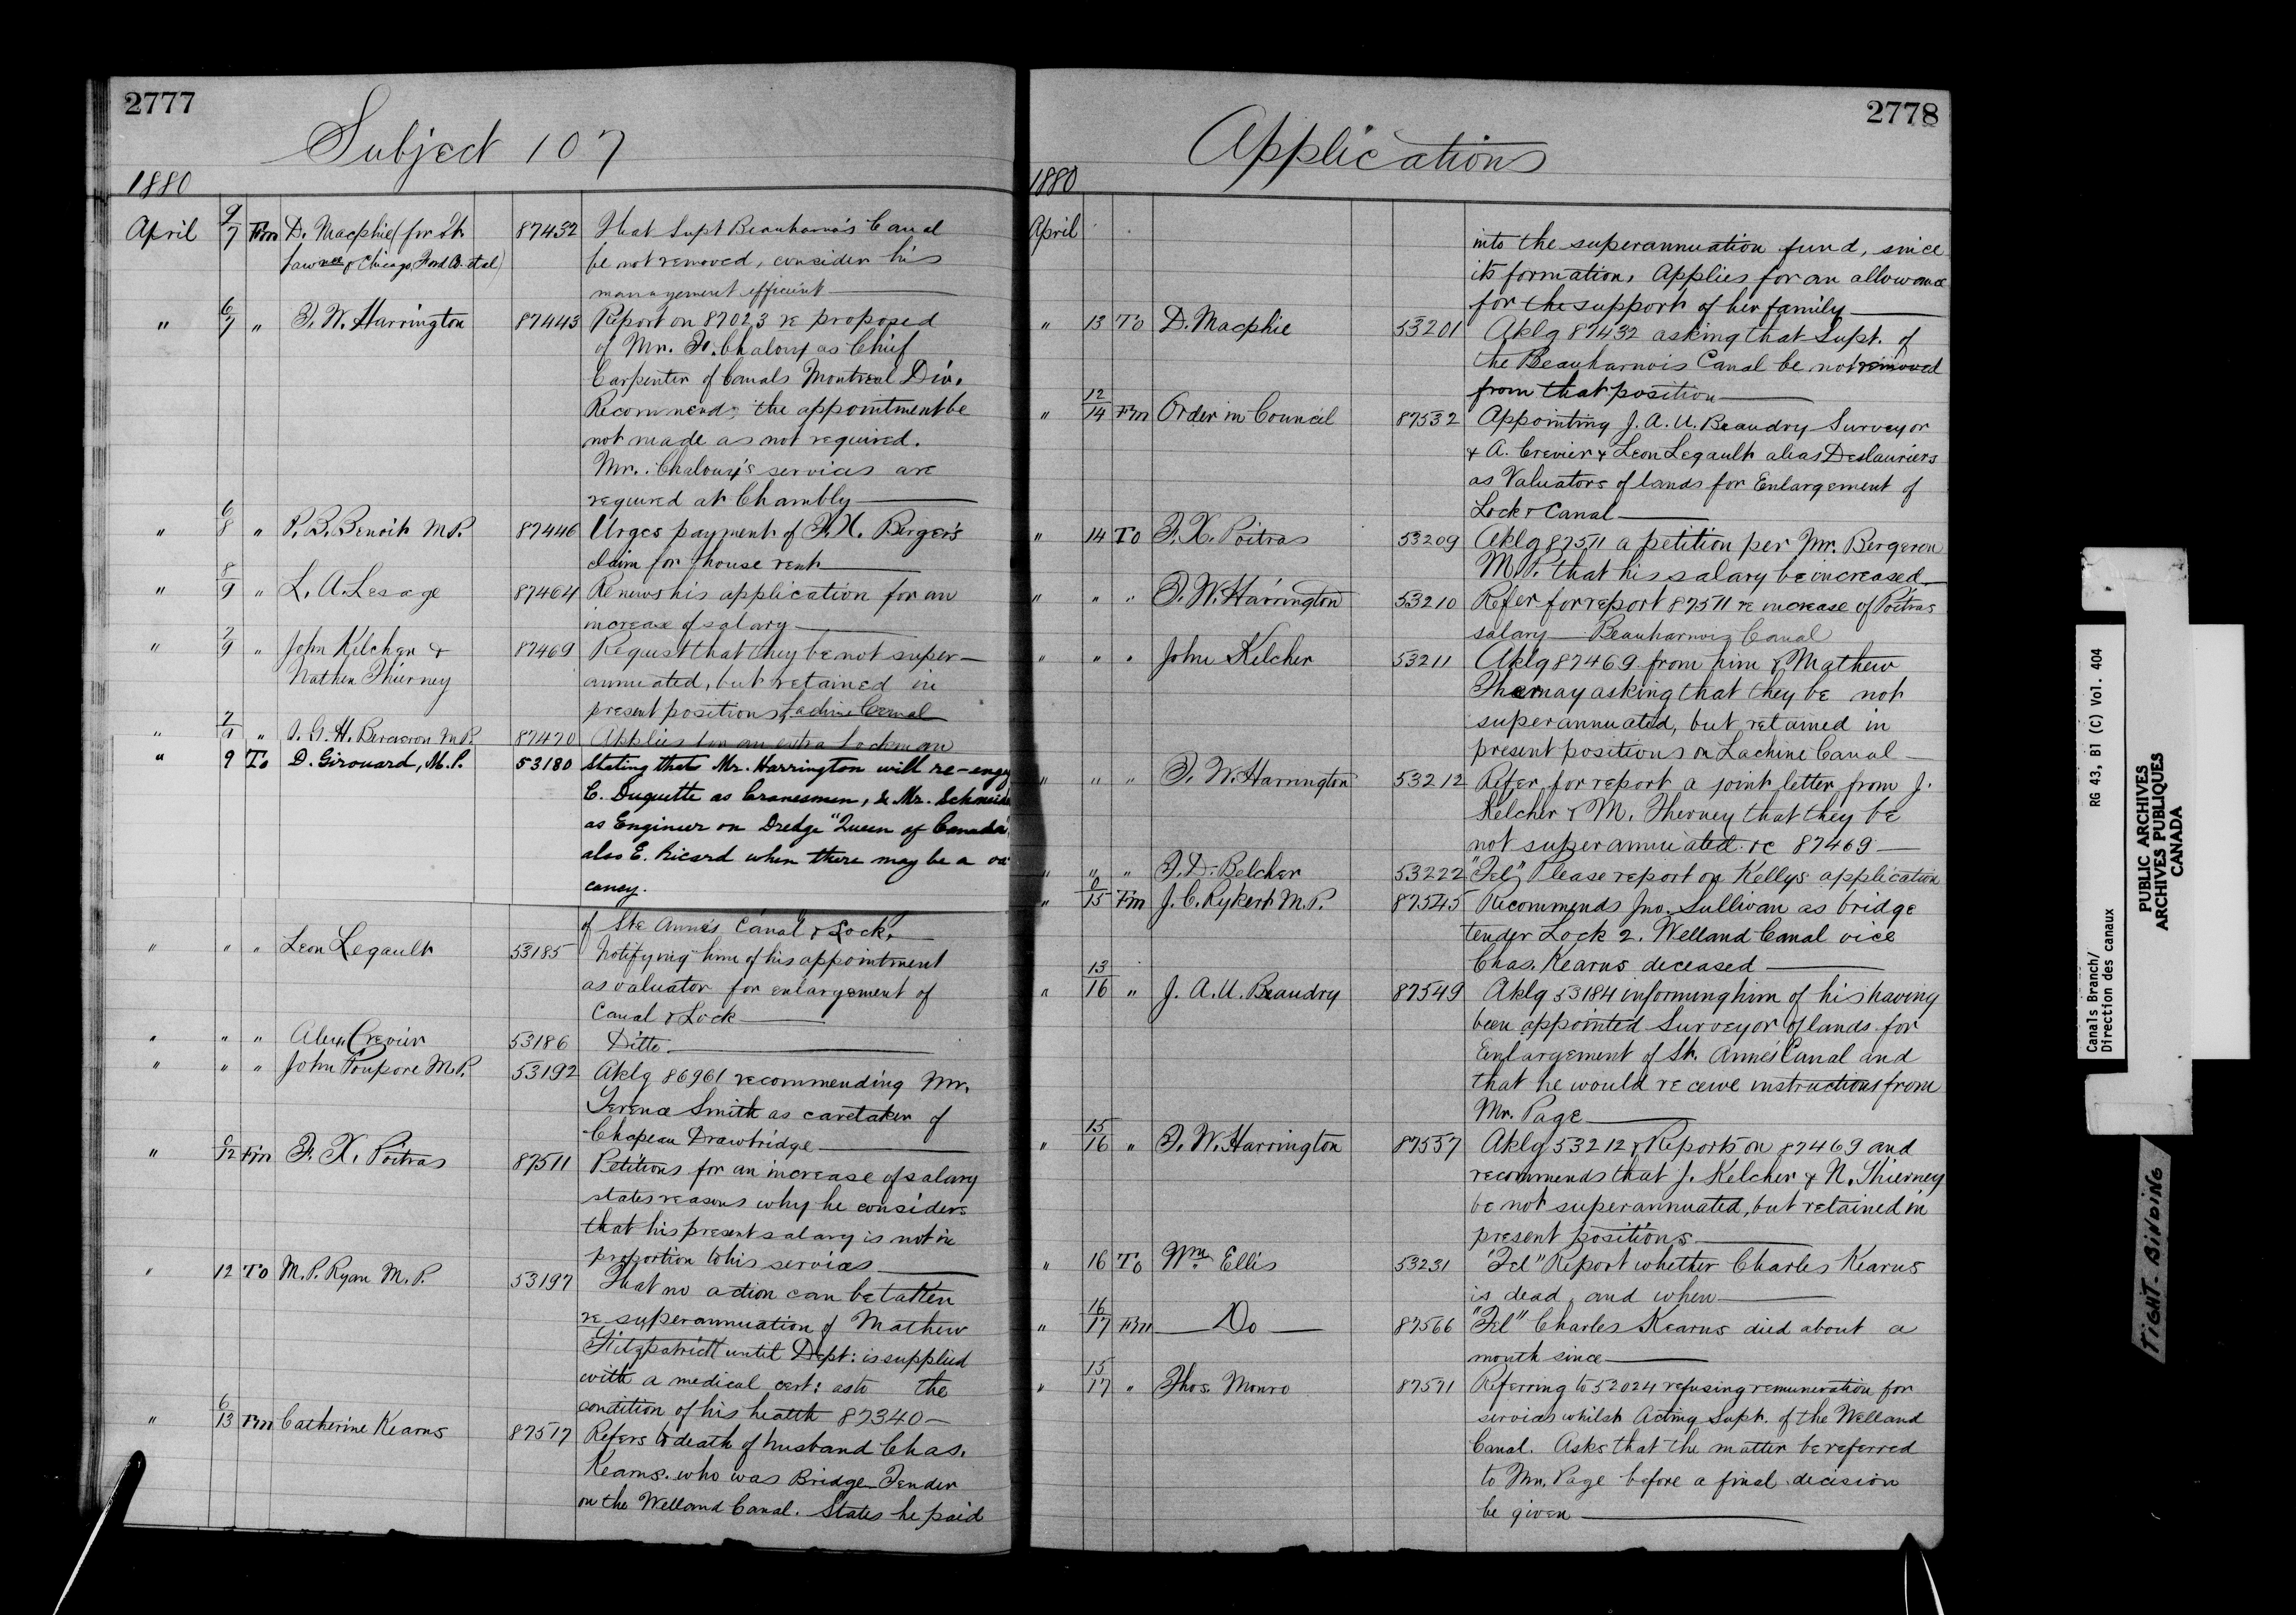 2777
Subject 107
1880
April 9/7 Fm D. Macphie (for St. 87432 That Supt Beauharnois Canal
Lawnce & Chicago Ford Co. et al) be not removed, consider his
management efficient
" 6/7 " F. W. Harrington 87443 Report on 87023 re proposed
of Mr. Fr. Chaloux as Chief
Carpenter of Canals Montreal Div.
Recommends the appointment be
not made as not required.
Mr. Chaloux's services are
required at Chambly
" 6/8 " P. B. Benoit M.P. 87446 Urges payment of F. X. Berger's
claim for house rent
" 8/9 " L. A. Lesage 87464 Renews his application for an
increase of salary
" 7/9 " John Kelcher & 87469 Request that they be not super-
Nathen Thierney annuated, but retained in
present positions Lachine Canal
" 7/9 " J. G. H. Bergeron M.P. 87470 Applies for an extra Lockman
" 9 To D. Girouard, M.P. 53180 Stating that Mr. Harrington will re-engage
C. Duquette as Cranesmen, & Mr. Schneider
as Engineer on Dredge "Queen of Canada"
also E. Ricard when there may be a va
cancy.
of Ste Anne's Canal & Lock.
" " " Leon Legault 53185 Notifying him of his appointment
as valuator for enlargement of
Canal & Lock
" " " Alex. Crevier 53186 Ditto
" " " John Poupore M.P. 53192 Aklg 86961 recommending Mr.
Terence Smith as caretaker of
Chapeau Drawbridge
" 6/12 Fm F. X. Poitras 87511 Petitions for an increase of salary
states reasons why he considers
that his present salary is not in
proportion to his services
" 12 To M. P. Ryan M.P. 53197 That no action can be taken
re superannuation of Mathew
Fitzpatrick until Dept: is supplied
with a medical cert: as to the
condition of his health 87340
" 6/13 Fm Catherine Kearns 87517 Refers to death of husband Chas.
Kearns. who was Bridge Tender
on the Welland Canal. States he paid
2778
Applications
1880
April into the superannuation fund, since
its formation. Applies for an allowance
for the support of her family
" 13 To D. Macphie 53201 Aklg 87432 asking that Supt. of
the Beauharnois Canal be not removed
from that position
" 12/14 Fm Order in Council 87532 Appointing J. A. U. Beaudry Surveyor
& A. Crevier & Leon Legault alias Deslauriers
as Valuators of lands for Enlargement of
Lock & Canal
" 14 To F. X. Poitras 53209 Aklg 87511 a petition per Mr. Bergeron
M.P. that his salary be increased
" " " F. W. Harrington 53210 Refer for report 87511 re increase of Poitras
salary — Beauharnois Canal
" " " John Kelcher 53211 Aklg 87469 from him & Mathew
Thernay asking that they be not
superannuated, but retained in
present positions on Lachine Canal
" " " F. W. Harrington 53212 Refer for report a joint letter from J.
Kelcher & M. Therney that they be
not superannuated. re 87469
" " " F. D. Belcher 53222 "Tel" Please report on Kellys application
" 9/15 Fm J. C. Rykert M.P. 87545 Recommends Jno. Sullivan as bridge
tender Lock 2. Welland Canal vice
Chas. Kearns deceased
" 13/16 " J. A. U. Beaudry 87549 Aklg 53184 informing him of his having
been appointed Surveyor of lands for
Enlargement of St. Anne's Canal and
that he would receive instructions from
Mr. Page
" 15/16 " F. W. Harrington 87557 Aklg 53212 & Reports on 87469 and
recommends that J. Kelcher & N. Thierney
be not superannuated, but retained in
present positions
" 16 To Wm. Ellis 53231 "Tel" Report whether Charles Kearns
is dead, and when
" 16/17 Fm Do 87566 "Tel" Charles Kearns died about a
month since
" 15/17 " Thos. Monro 87571 Referring to 52024 refusing remuneration for
services whilst Acting Supt. of the Welland
Canal. Asks that the matter be referred
to Mr. Page before a final decision
be given
Canals Branch/ RG 43, B1 (C) Vol. 404
Direction des canaux
PUBLIC ARCHIVES
ARCHIVES PUBLIQUES
CANADA
TIGHT BINDING